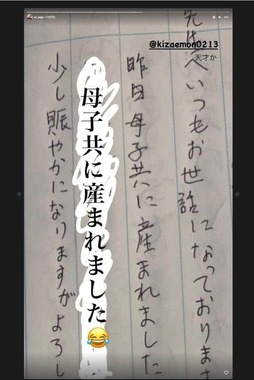 @kizaemon0213
天才か
先生へいつもお世話になっております
昨日母子共に産まれました
母子共に産まれました😂
少し賑やかになりますがよろし